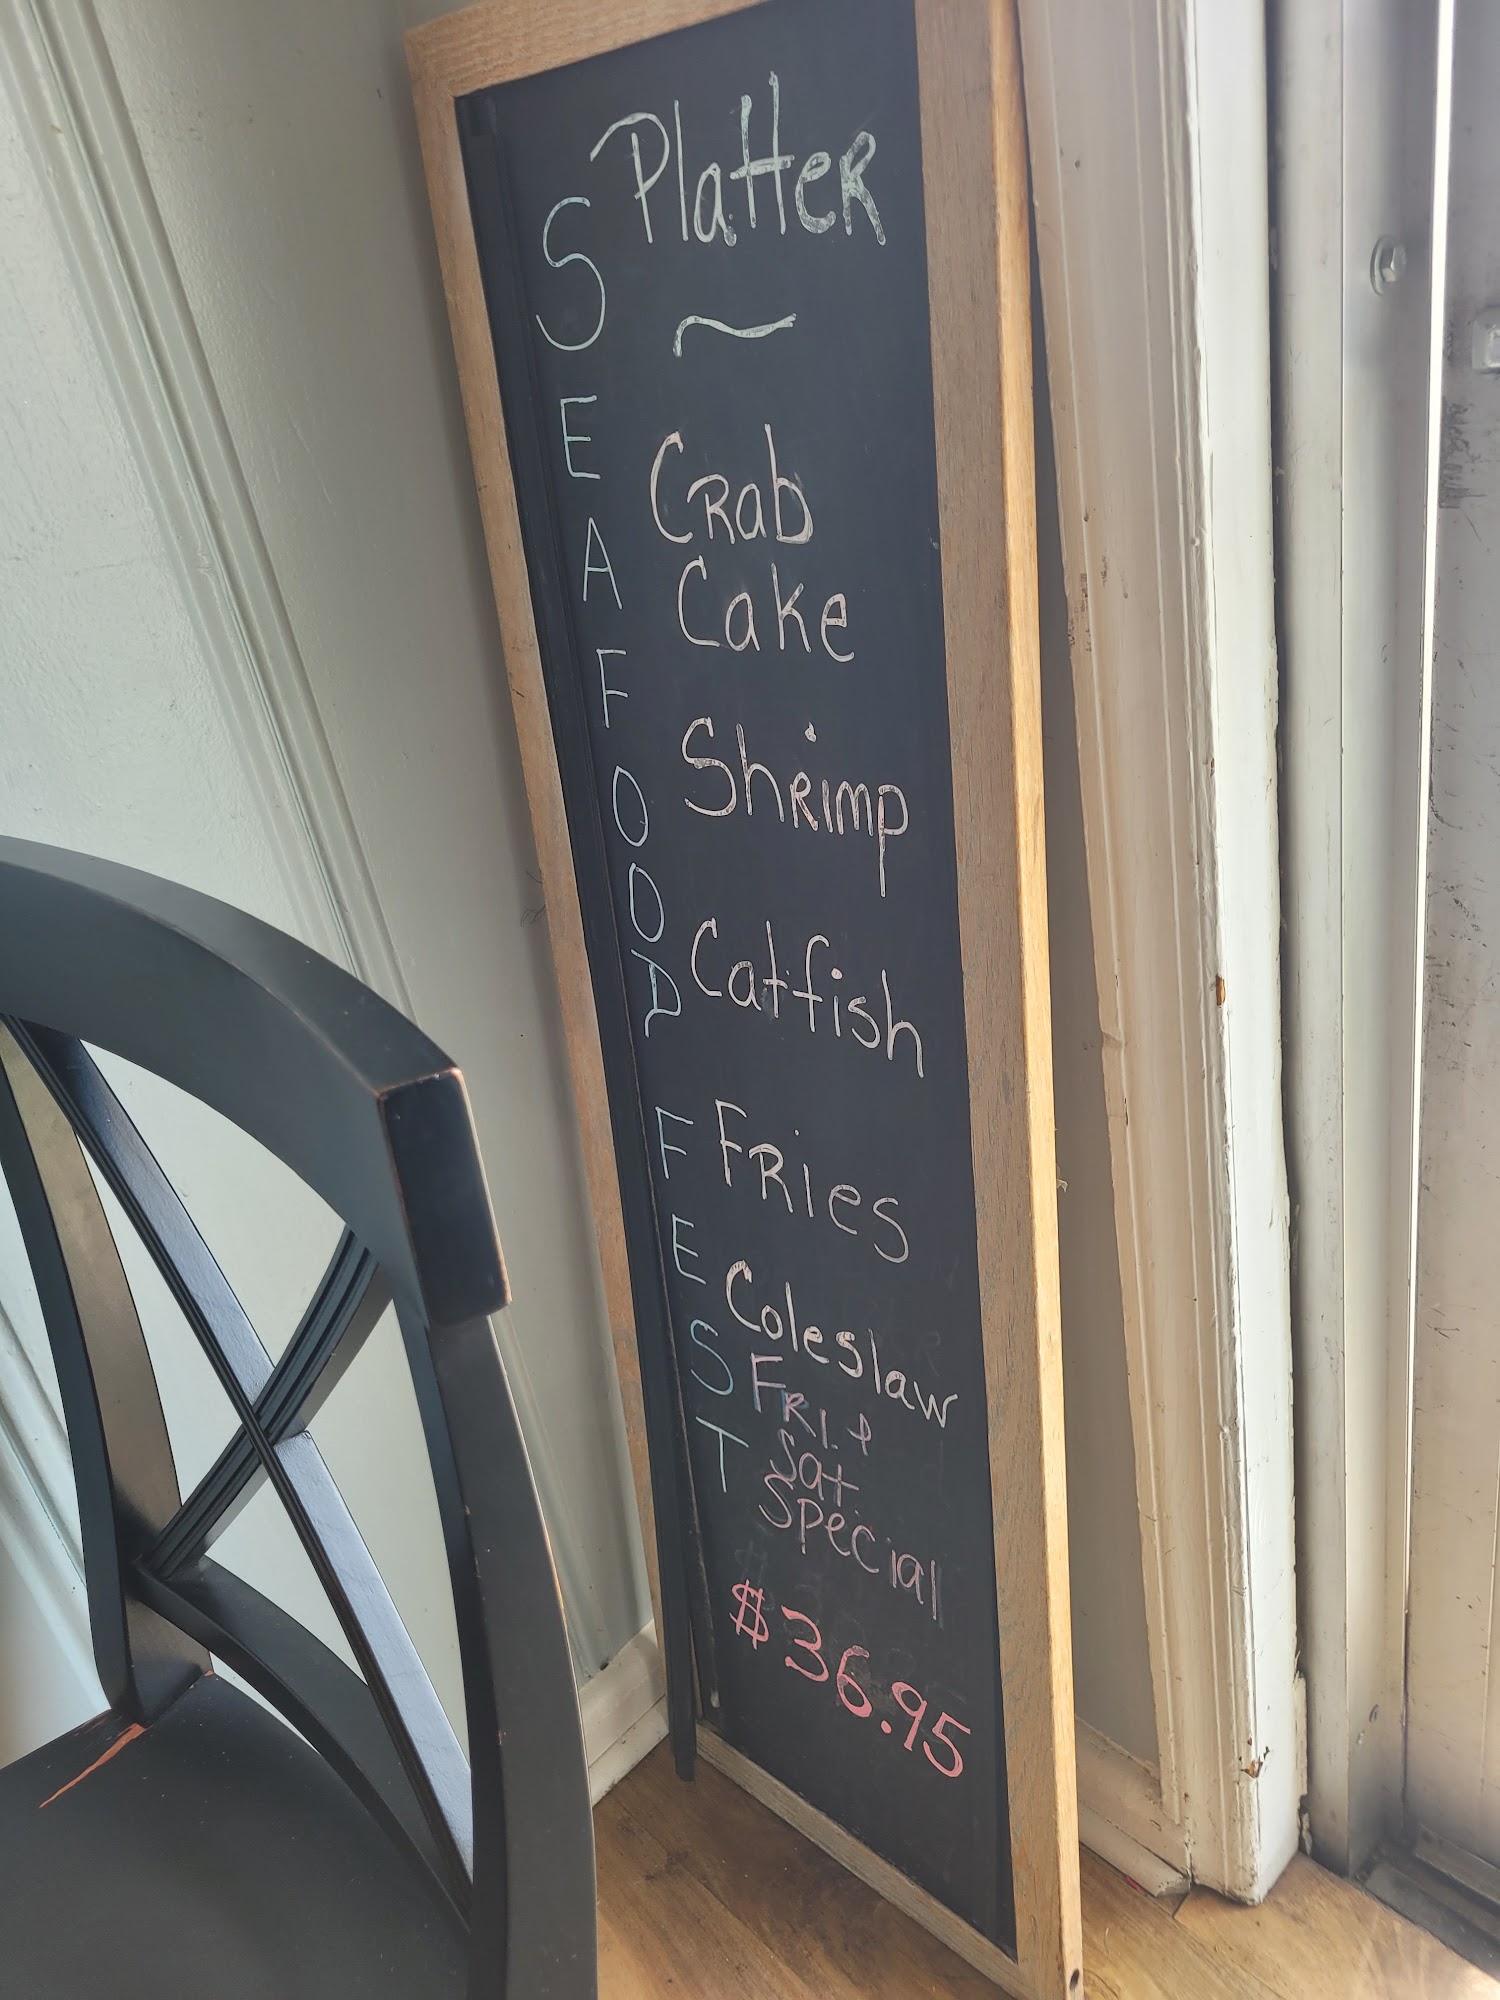 SEAFOOD FEST
Platter
~
Crab
Cake
Shrimp
Catfish
Fries
Coleslaw
Fri. +
Sat
Special
$36.95